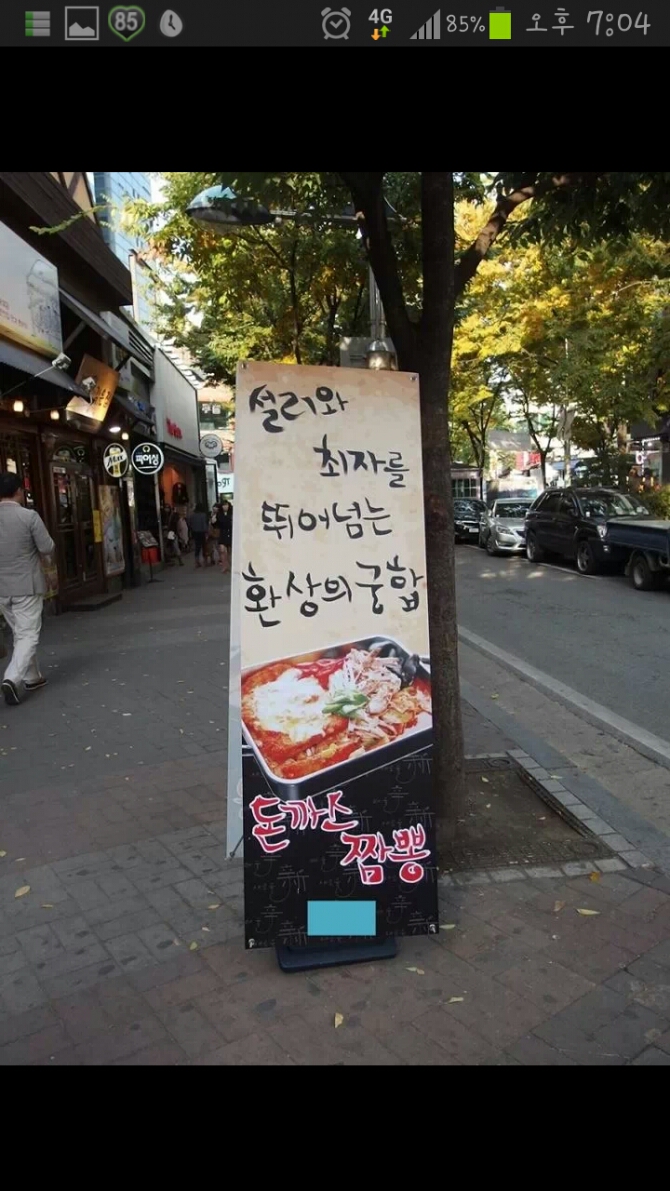 85
4G
85%
오후 7:04
설리와
최자를
뛰어넘는
환상의 궁합
돈까스
짬뽕